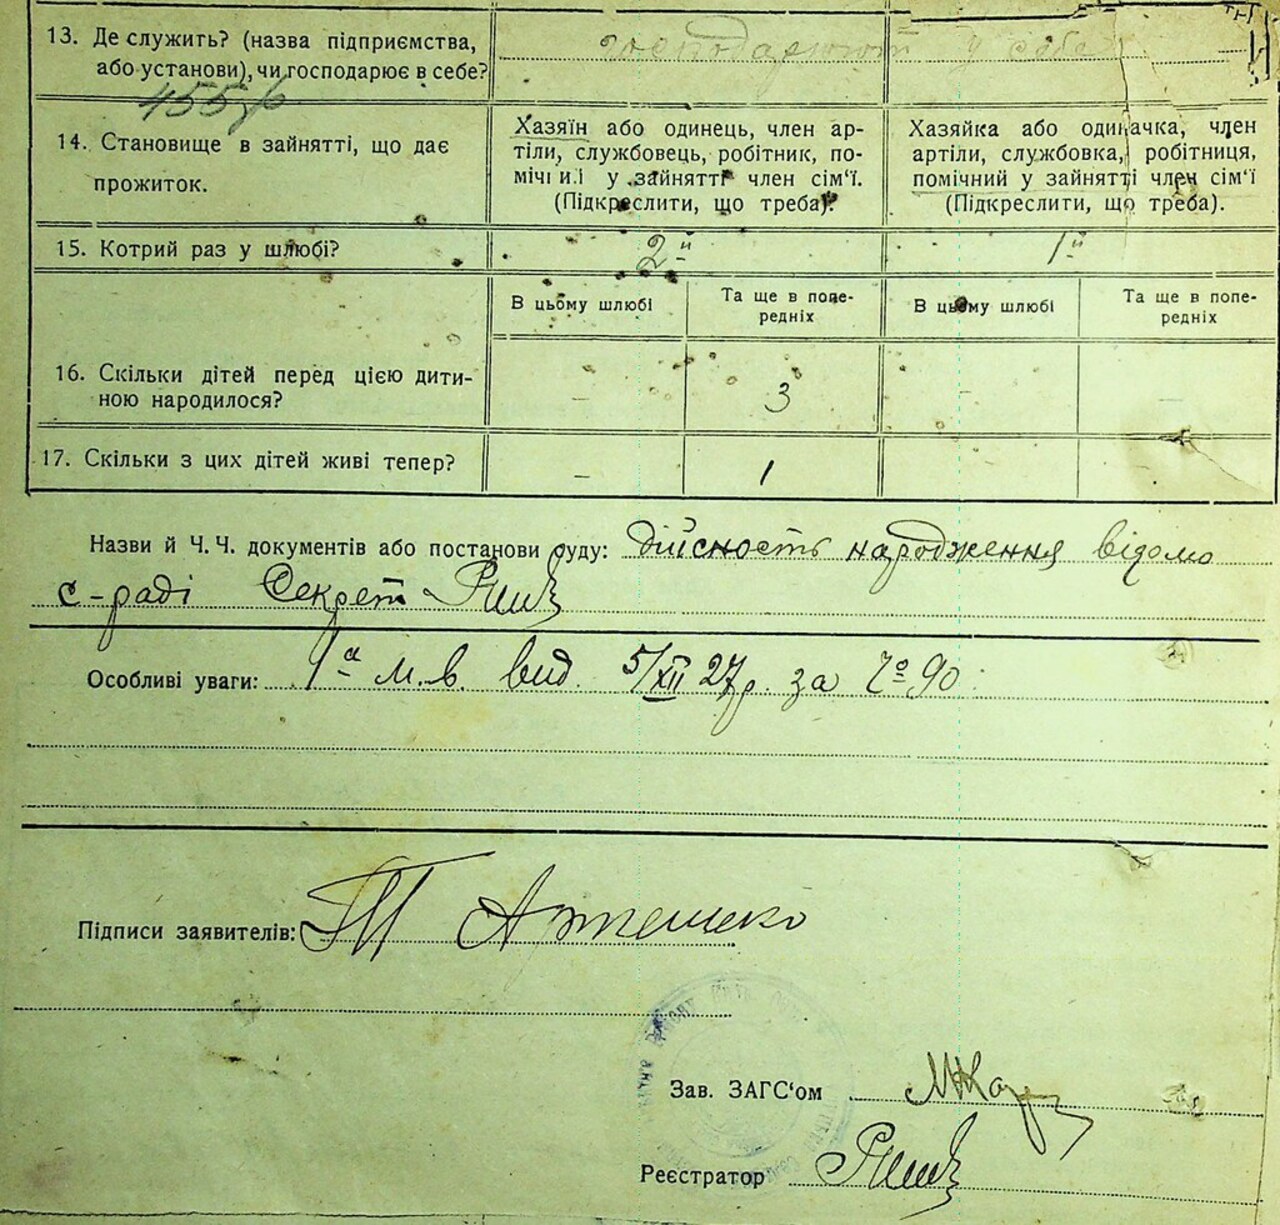 13. Де служить? (назва підприємства,
або установи), чи господарює в себе?
господарюют у себе
455зв
14. Становище в зайнятті, що дає
прожиток.
Хазяїн або одинець, член ар-
тіли, службовець, робітник, по-
мічн и.і у зайнятті член сім'ї.
(Підкреслити, що треба).
Хазяйка або одиначка, член
артіли, службовка, робітниця,
помічний у зайнятті член сім'ї
(Підкреслити, що треба).
15. Котрий раз у шлюбі?
2й
1й
В цьому шлюбі
Та ще в попе-
редніх
В цьому шлюбі
Та ще в попе-
редніх
16. Скільки дітей перед цією дити-
ною народилося?
–
3
–
–
17. Скільки з цих дітей живі тепер?
–
1
Назви й Ч. Ч. документів або постанови суду: дійсность народження відомо
с-раді Секрет
Особливі уваги: 1а м.в. вид. 5/XII 27р. за №90
Підписи заявителів:
Зав. ЗАГС'ом
Реєстратор